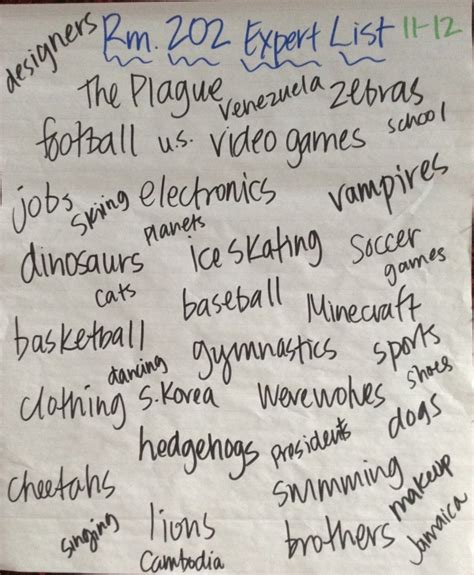 designers Rm. 202 Expert List 11-12
The Plague Venezuela zebras
football u.s. video games school
jobs skiing electronics vampires
dinosaurs planets ice skating Soccer
cats baseball Minecraft games
basketball dancing gymnastics sports
clothing S. Korea Werewolves shoes
hedgehogs presidents dogs
cheetahs swimming makeup
singing lions brothers Jamaica
Cambodia